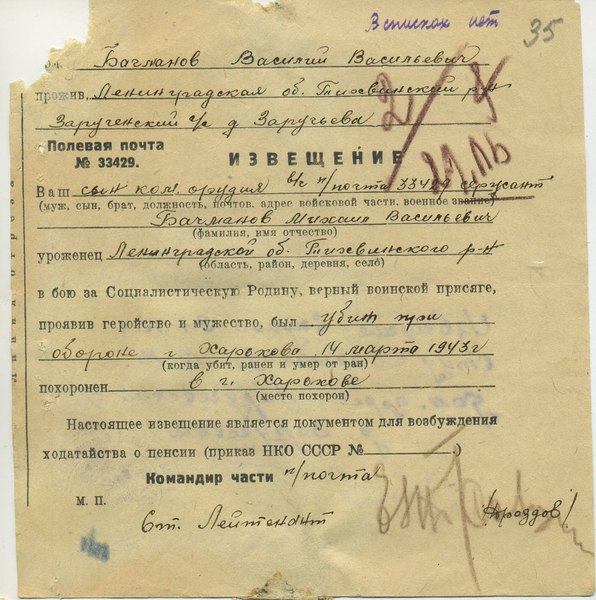 В списках нет 35
Бачманов Василий Васильевич
прожив. Ленинградская об. Тихвинский р-н
Заручевский с/с д Заручьева
2/9
Полевая почта
№ 33429.
ИЗВЕЩЕНИЕ
Ваш сын ком. орудия в/с п/почта 33429 сержант
(муж, сын, брат, должность, почтов. адрес войсковой части. военное звание)
Бачманов Михаил Васильевич
(фамилия, имя отчество)
уроженец Ленинградской об. Тихвинского р-н
(область, район, деревня, село)
в бою за Социалистическую Родину, верный воинской присяге,
проявив геройство и мужество, был убит при
обороне г Харькова 14 марта 1943 г
(когда убит, ранен и умер от ран)
похоронен в г. Харькове
(место похорон)
Настоящее извещение является документом для возбуждения
ходатайства о пенсии (приказ НКО СССР № .)
Командир части п/почта
М. П.
Ст. Лейтенант